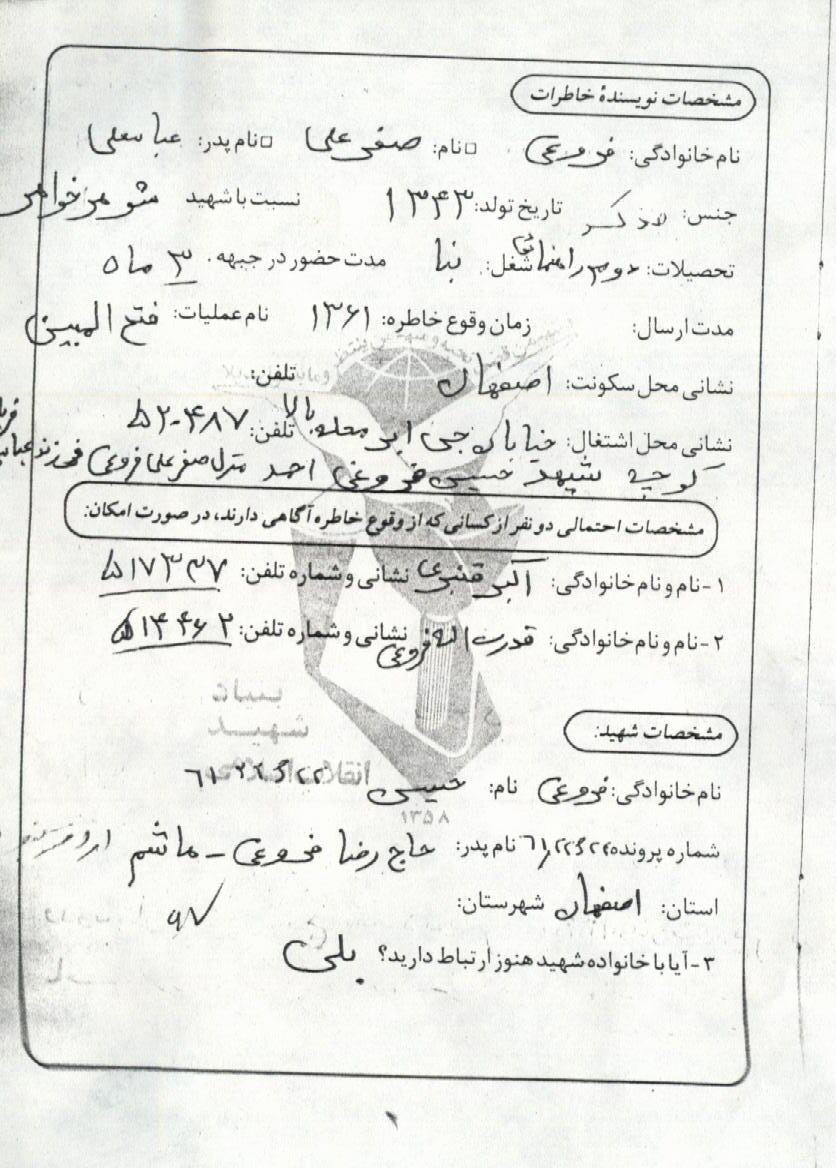 مشخصات نویسندهٔ خاطرات
نام خانوادگی: فروغی □نام: صفرعلی □نام پدر: عباسعلی
جنس: مذکر تاریخ تولد: ۱۳۴۳ نسبت با شهید شوهر خواهر
تحصیلات: دوم راهنمائی شغل: بنا مدت حضور در جبهه. ۳ ماه
مدت ارسال: زمان وقوع خاطره: ۱۳۶۱ نام عملیات: فتح المبین
نشانی محل سکونت: اصفهان تلفن:
نشانی محل اشتغال: خیابان جی ابر محله بالا تلفن: ۵۲۰۴۸۷
کوچه شهید حسین فروغی احمد منزل صفر علی فروغی فرزند عباس
مشخصات احتمالی دو نفر از کسانی که از وقوع خاطره آگاهی دارند، در صورت امکان:
۱-نام و نام خانوادگی: اکبر قنبری نشانی و شماره تلفن: ۵۱۷۳۳۷
۲-نام و نام خانوادگی: قدرت اله فروغی نشانی و شماره تلفن: ۵۱۴۴۶۲
بنیاد
شهید
انقلاب اسلامی
۱۳۵۸
مشخصات شهید:
نام خانوادگی: فروغی نام: حسین
شماره پرونده نام پدر: حاج رضا فروغی - هاشم
استان: اصفهان شهرستان:
۹۷
۳-آیا با خانواده شهید هنوز ارتباط دارید؟ بلی